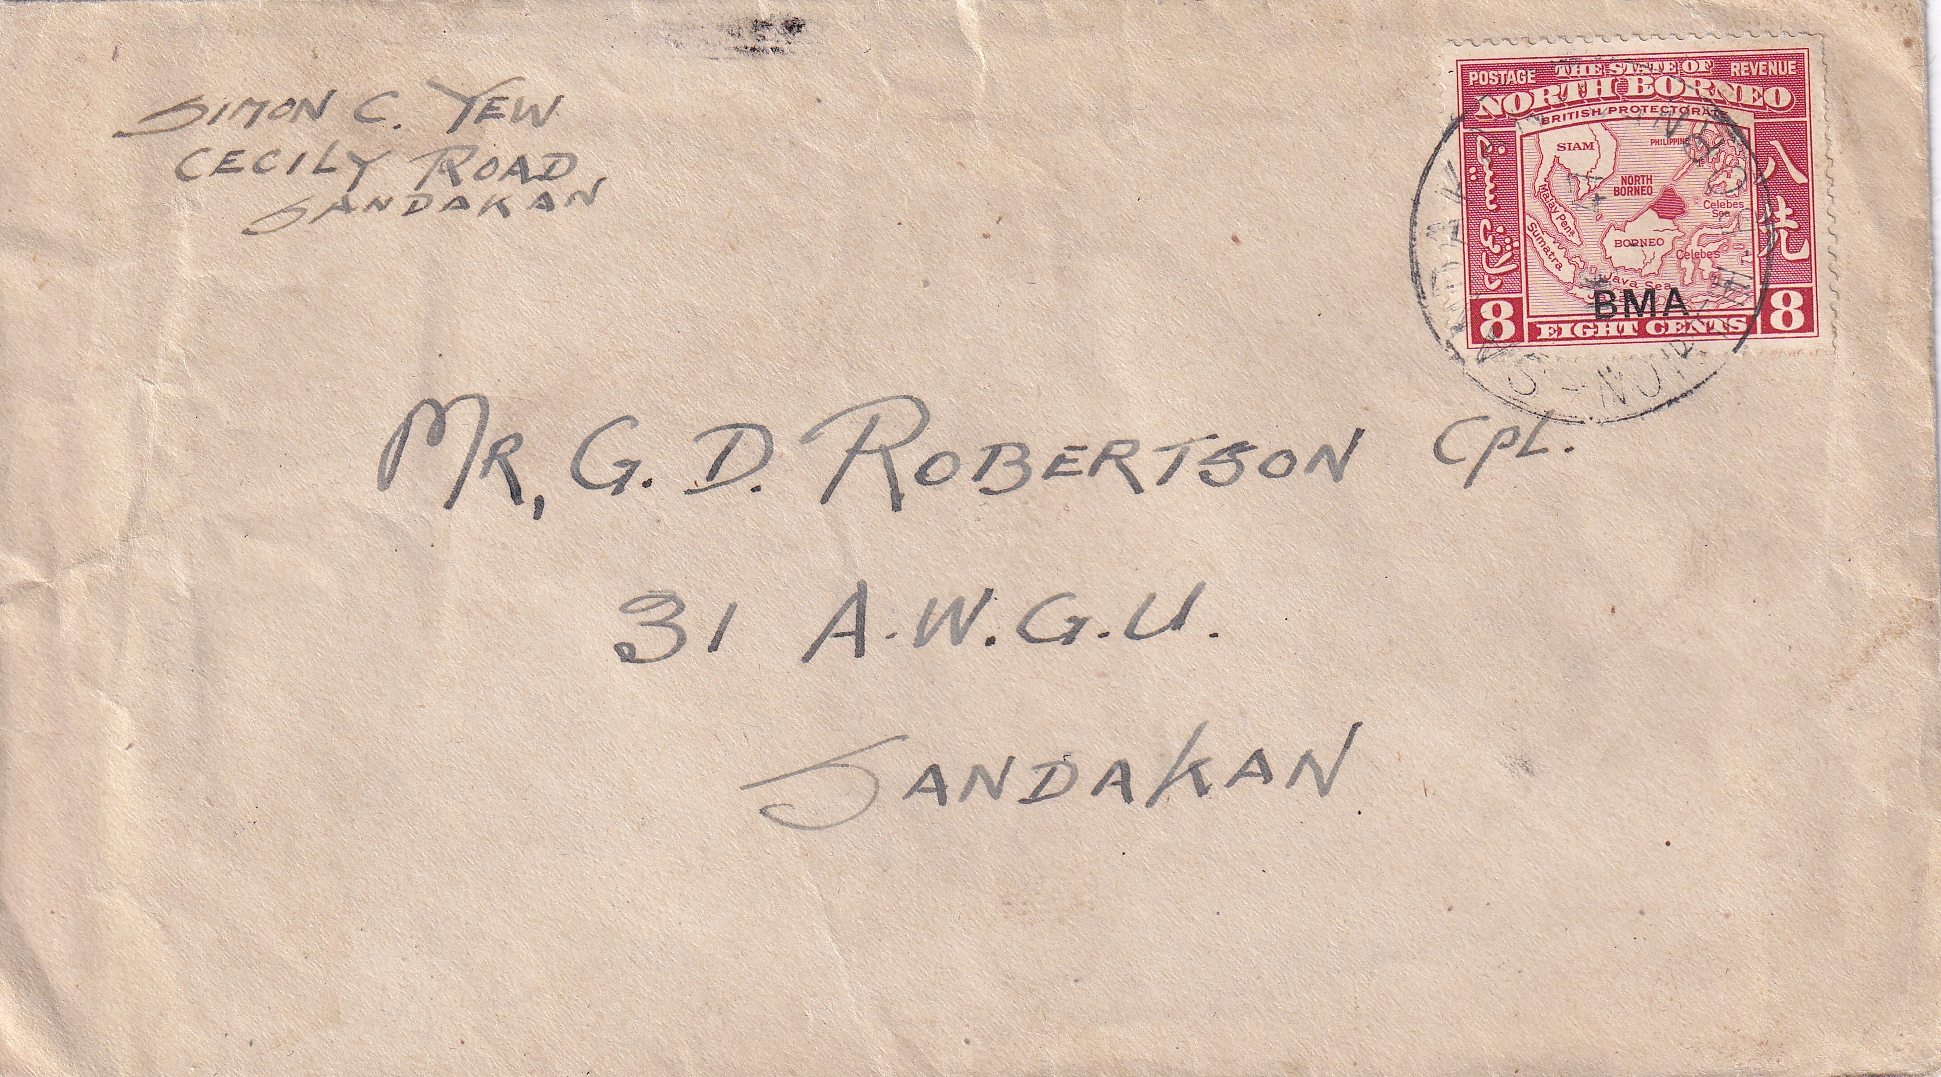 SIMON C. YEW
CECILY ROAD
SANDAKAN
POSTAGE THE STATE OF REVENUE
NORTH BORNEO
BRITISH PROTECTORA
SIAM
PHILIPPIN
NORTH
BORNEO
Malay Pena
Celebes
Sea
Sumatra
BORNEO
Celebes
Java Sea
八先
BMA
8 EIGHT CENTS 8
MR, G. D. ROBERTSON CPL.
31 A.W.G.U.
SANDAKAN